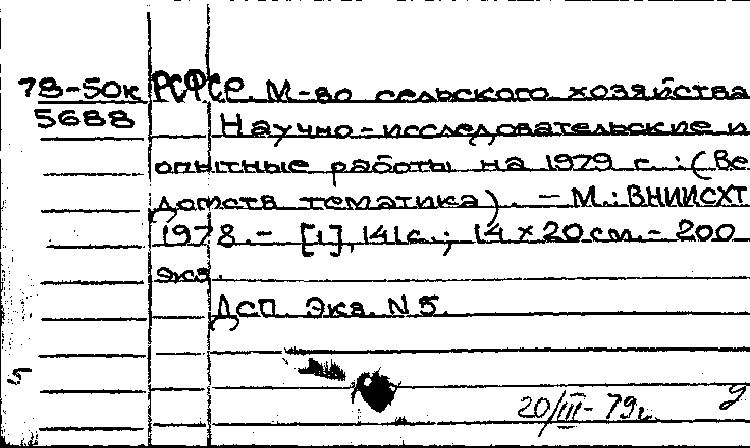 78-50к РСФСР. М-во сельского хозяйства
5688 Научно-исследовательские и
опытные работы на 1979 г. : (Ве
домств тематика). - М.: ВНИИСХТ
1978. - [1], 141с.; 14 × 20 см. - 200
экз.
Дсп. Экз. N 5.
20/III - 79г.